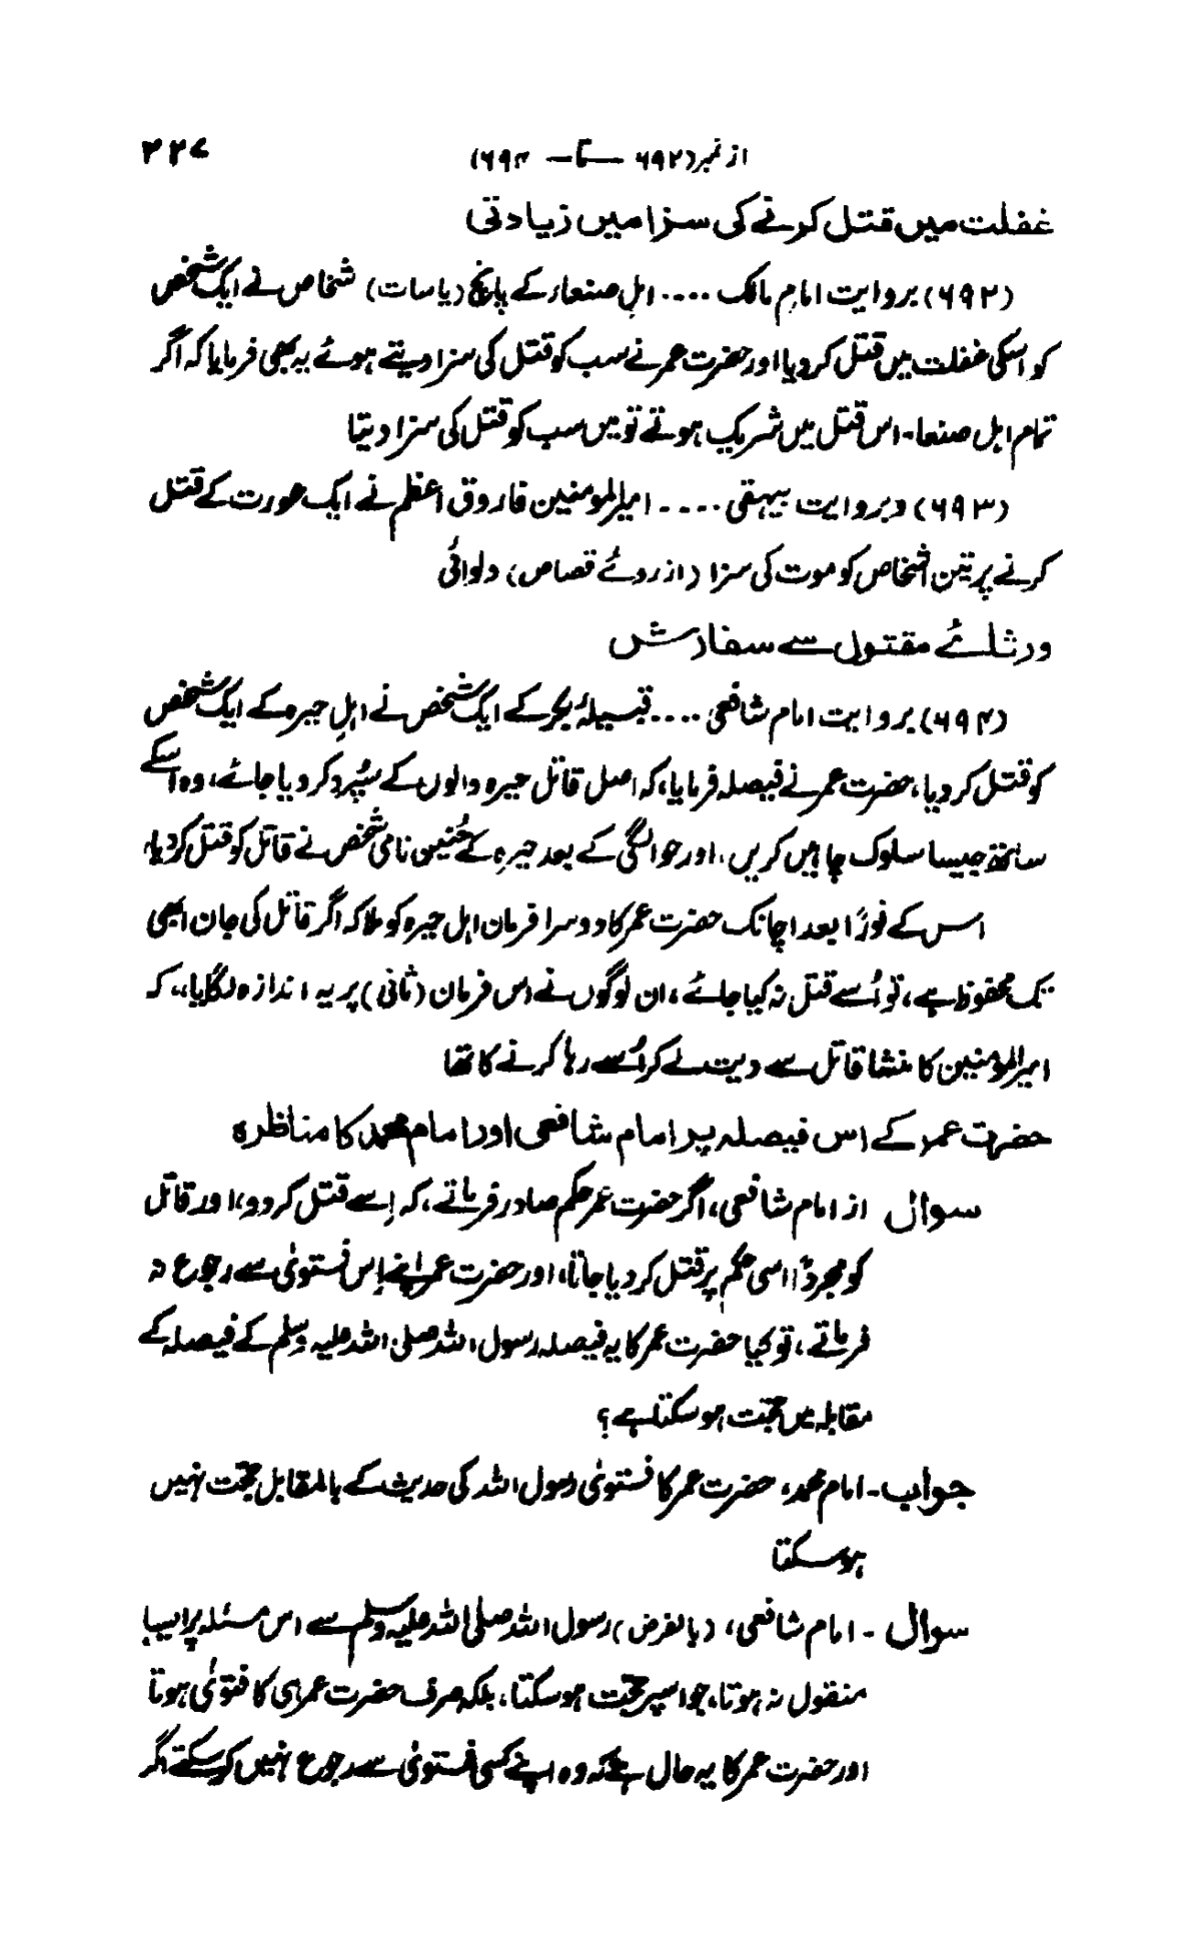 از نمبر (۶۹۲ — تا — ۶۹۴) ۲۲۷
غفلت میں قتل کرنے کی سزا میں زیادتی
(۶۹۲) بروایت امام مالک .... اہل صنعاء کے پانچ (یا سات) شخاص نے ایک شخص
کو اسکی غفلت میں قتل کر دیا اور حضرت عمر نے سب کو قتل کی سزا دیتے ہوئے یہ بھی فرمایا کہ اگر
تمام اہل صنعا۔ اس قتل میں شریک ہوتے تو میں سب کو قتل کی سزا دیتا
(۶۹۳) دبروایت بیہقی .... امیرالمومنین فاروق اعظم نے ایک عورت کے قتل
کرنے پر تین اشخاص کو موت کی سزا (از روئے قصاص) دلوائی
ورثائے مقتول سے سفارش
(۶۹۴) بروایت امام شافعی .... قبیلۂ بکر کے ایک شخص نے اہلِ حیرہ کے ایک شخص
کو قتل کر دیا، حضرت عمر نے فیصلہ فرمایا، کہ اصل قاتل حیرہ والوں کے سُپرد کر دیا جائے، وہ اسکے
ساتھ جیسا سلوک چاہیں کریں، اور حوالگی کے بعد حیرہ کے حُنین نامی شخص نے قاتل کو قتل کر دیا،
اس کے فورًا بعد اچانک حضرت عمر کا دوسرا فرمان اہل حیرہ کو ملا کہ اگر قاتل کی جان ابھی
تک محفوظ ہے، تو اُسے قتل نہ کیا جائے، ان لوگوں نے اس فرمان (ثانی) پر یہ اندازہ لگایا، کہ
امیرالمؤمنین کا منشا قاتل سے دیت لے کر اُسے رہا کرنے کا تھا
حضرت عمر کے اس فیصلہ پر امام شافعی اور امام محمد کا مناظرہ
سوال از امام شافعی، اگر حضرت عمر حکم صادر فرماتے، کہ اِسے قتل کر دو، اور قاتل
کو مجردًا اسی حکم پر قتل کر دیا جاتا، اور حضرت عمر اپنے اِس فتویٰ سے رجوع نہ
فرماتے، تو کیا حضرت عمر کا یہ فیصلہ رسول اللہ صلی اللہ علیہ وسلم کے فیصلہ کے
مقابلہ میں حجّت ہو سکتا ہے؟
جواب۔ امام محمد، حضرت عمر کا فتویٰ رسول اللہ کی حدیث کے بالمقابل حجّت نہیں
ہو سکتا
سوال ۔ امام شافعی، (بالفرض) رسول اللہ صلی اللہ علیہ وسلم سے اس مسئلہ پر ایسا
منقول نہ ہوتا، جو اسپر حجّت ہو سکتا، بلکہ صرف حضرت عمر ہی کا فتویٰ ہوتا
اور حضرت عمر کا یہ حال ہے کہ وہ اپنے کسی فتویٰ سے رجوع نہیں کر سکتے مگر